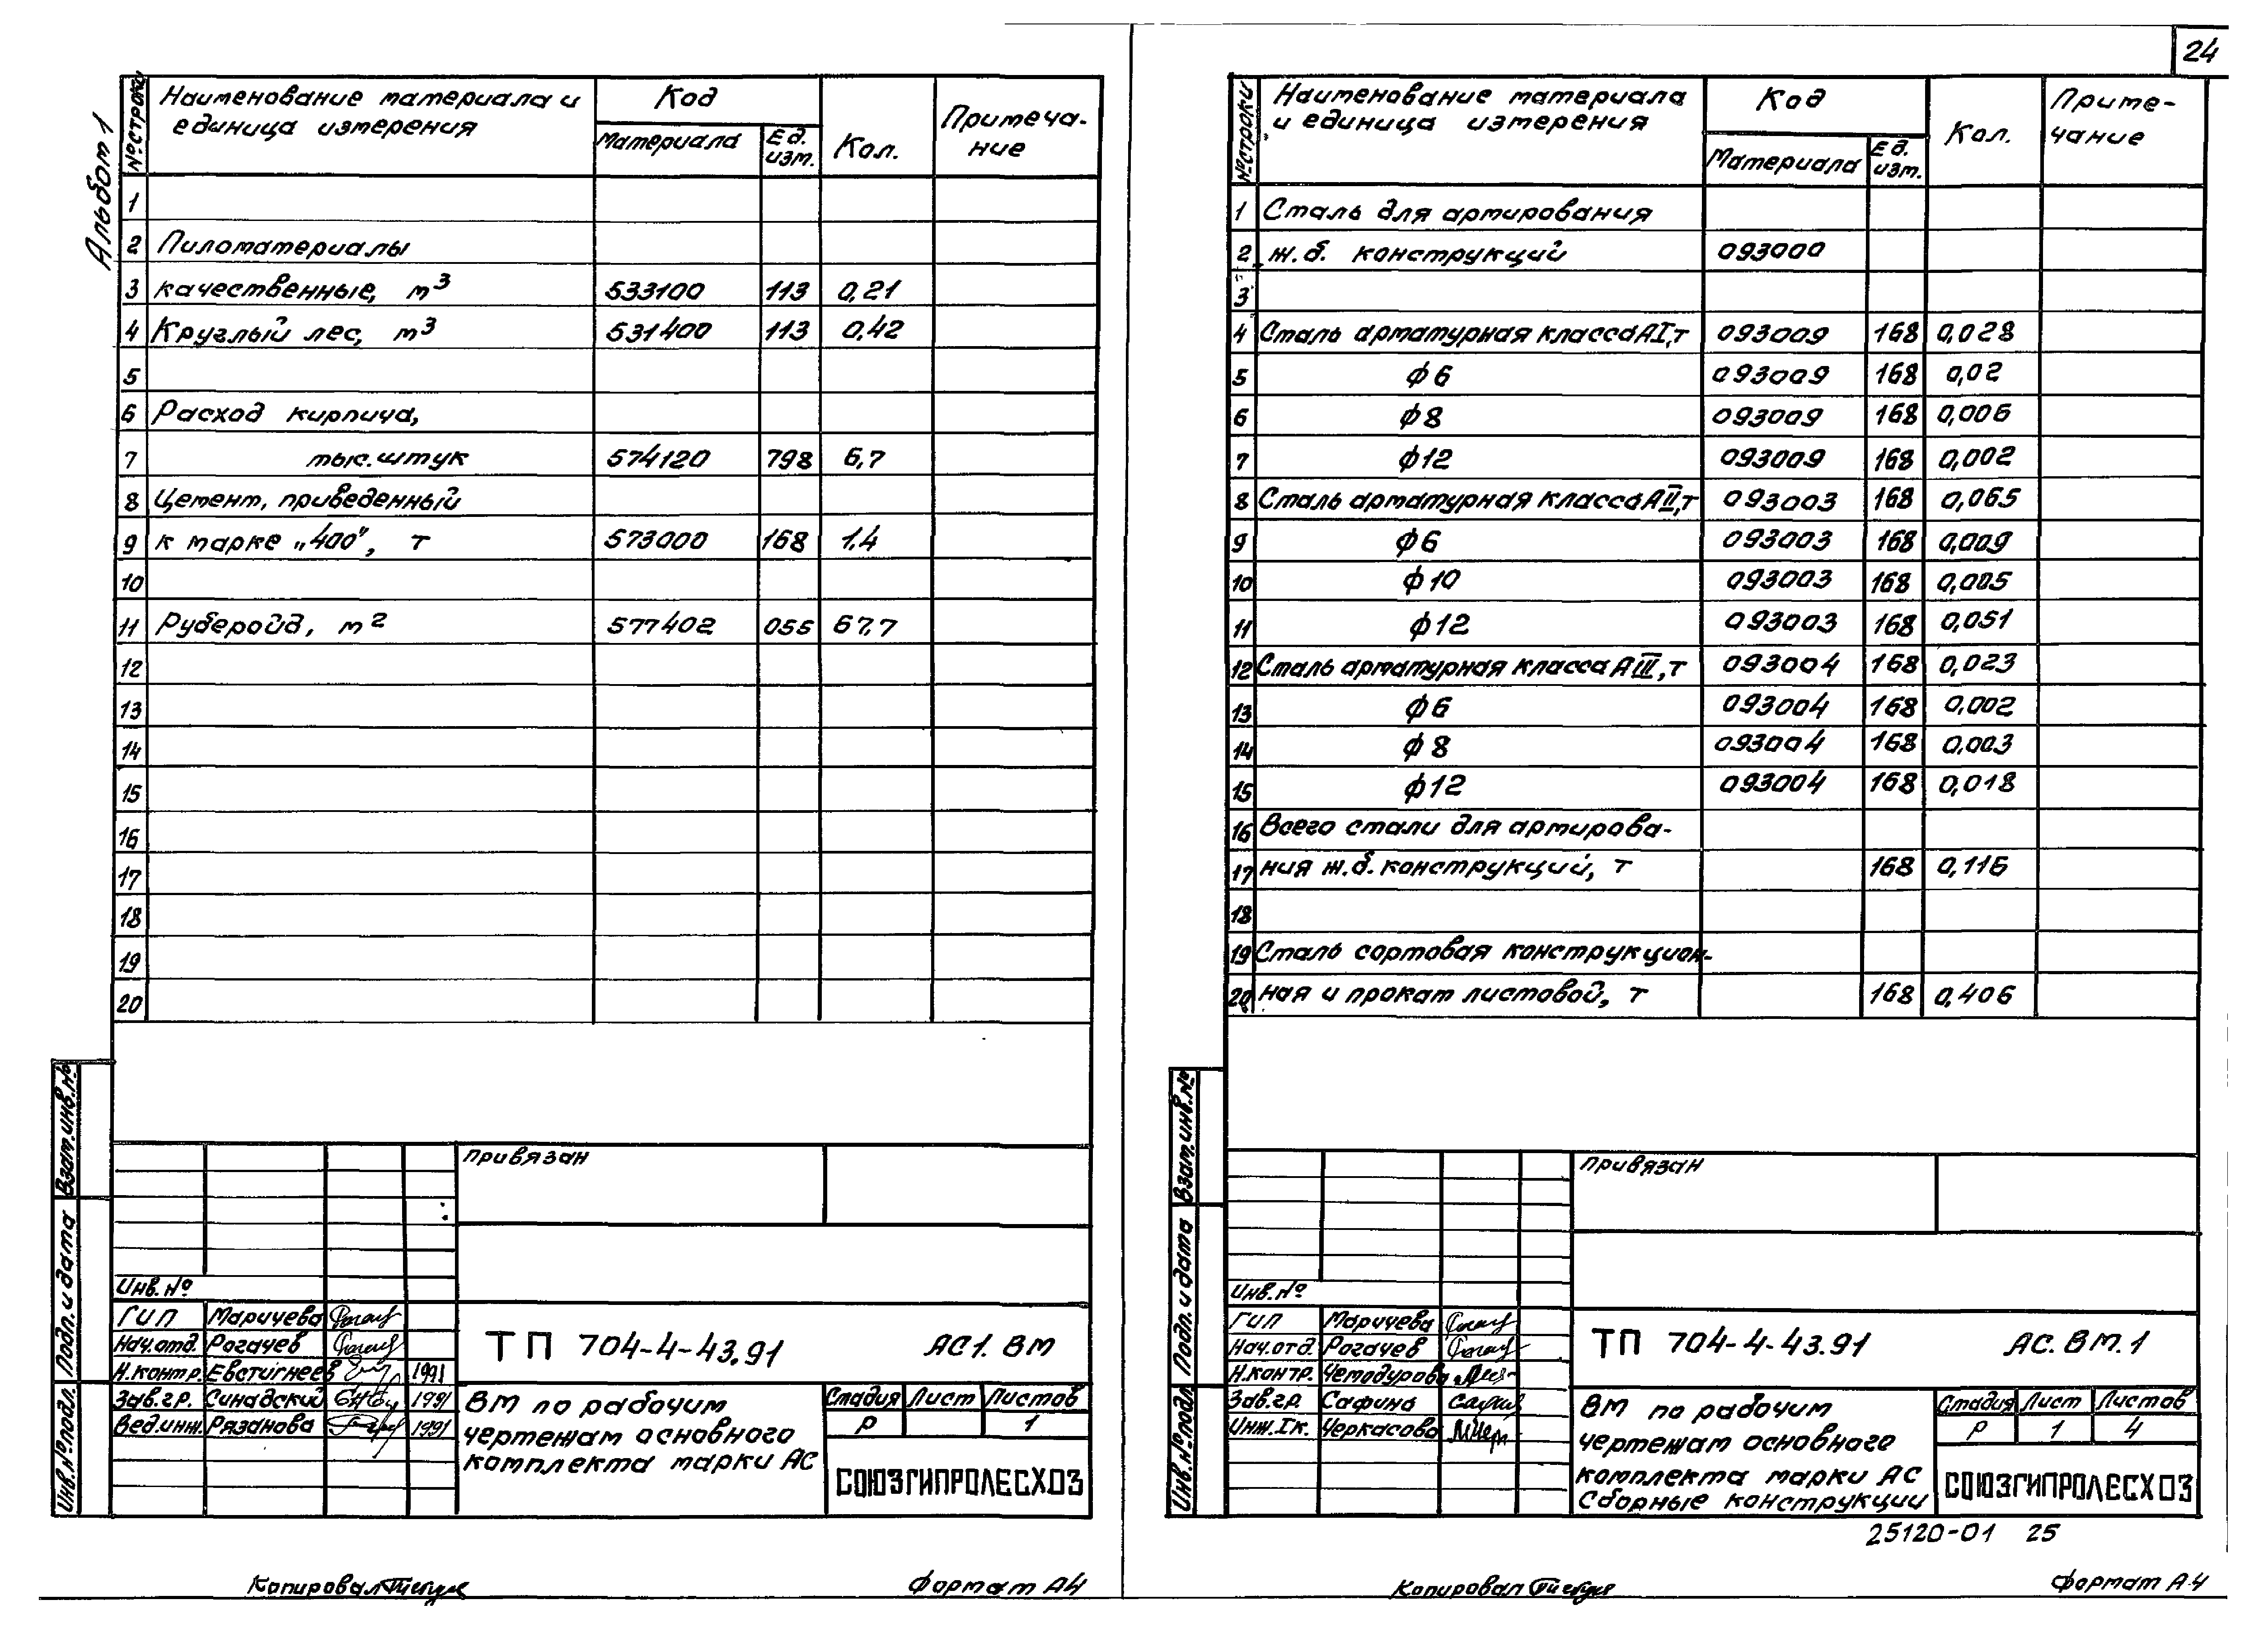 24
Альбом 1
№ строки
Наименование материала и единица измерения
Код
Материала
Ед. изм.
Кол.
Примеча-
ние
1
2 Пиломатериалы
3 качественные, м³ 533100 113 0,21
4 Круглый лес, м³ 531400 113 0,42
5
6 Расход кирпича,
7 тыс. штук 574120 798 6,7
8 Цемент, приведенный
9 к марке „400", т 573000 168 1,4
10
11 Рубероид, м² 577402 055 67,7
12
13
14
15
16
17
18
19
20
Взам. инв. №
Подп. и дата
Инв. № подл.
Привязан
Инв. №
ГИП Маричева
Нач.отд. Рогачев
Н.контр. Евстигнеев 1991
Зав.гр. Синадский 1991
Вед.инж. Рязанова 1991
ТП 704-4-43.91 АС1. ВМ
ВМ по рабочим
чертежам основного
комплекта марки АС
Стадия Лист Листов
Р 1
СОЮЗГИПРОЛЕСХОЗ
Копировал
Формат А4
№ строки
Наименование материала
и единица измерения
Код
Материала
Ед. изм.
Кол.
Приме-
чание
1 Сталь для армирования
2 ж.б. конструкций 093000
3
4 Сталь арматурная класса АI,т 093009 168 0,028
5 ф6 093009 168 0,02
6 ф8 093009 168 0,006
7 ф12 093009 168 0,002
8 Сталь арматурная класса АII,т 093003 168 0,065
9 ф6 093003 168 0,009
10 ф10 093003 168 0,005
11 ф12 093003 168 0,051
12 Сталь арматурная класса АIII,т 093004 168 0,023
13 ф6 093004 168 0,002
14 ф8 093004 168 0,003
15 ф12 093004 168 0,018
16 Всего стали для армирова-
17 ния ж.б. конструкций, т 168 0,116
18
19 Сталь сортовая конструкцион-
20 ная и прокат листовой, т 168 0,406
Взам. инв. №
Подп. и дата
Инв. № подл.
Привязан
Инв. №
ГИП Маричева
Нач.отд. Рогачев
Н.контр. Чемодурова
Зав.гр. Сафина
Инж.Iк. Черкасова
ТП 704-4-43.91 АС. ВМ.1
ВМ по рабочим
чертежам основного
комплекта марки АС
Сборные конструкции
Стадия Лист Листов
Р 1 4
СОЮЗГИПРОЛЕСХОЗ
25120-01 25
Копировал
Формат А4